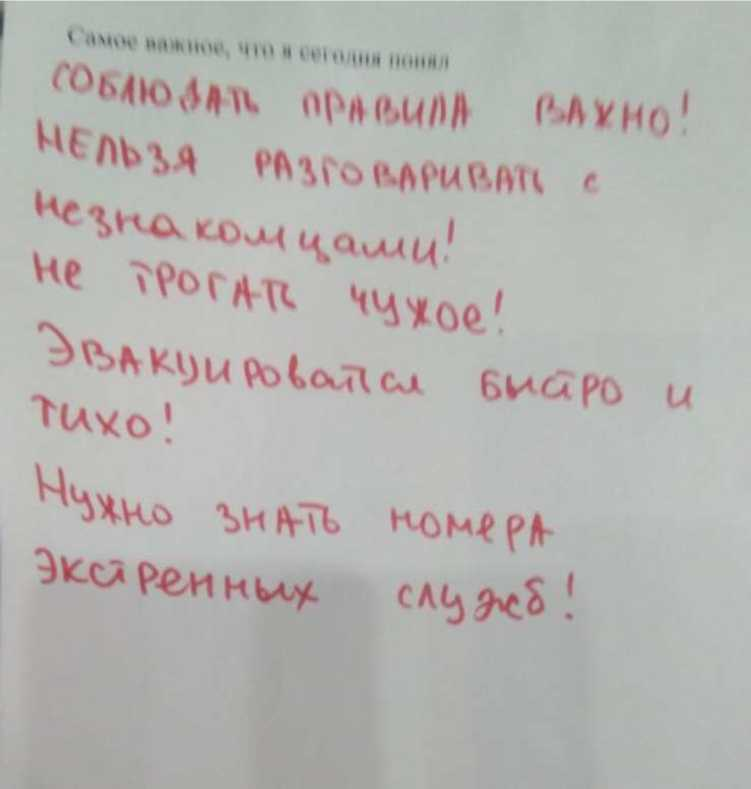 Самое важное, что я сегодня понял
СОБЛЮДАТЬ ПРАВИЛА ВАЖНО!
НЕЛЬЗЯ РАЗГОВАРИВАТЬ с
незнакомцами!
не ТРОГАТЬ чужое!
Эвакуироваться быстро и
тихо!
Нужно знать номера
экстренных служб!